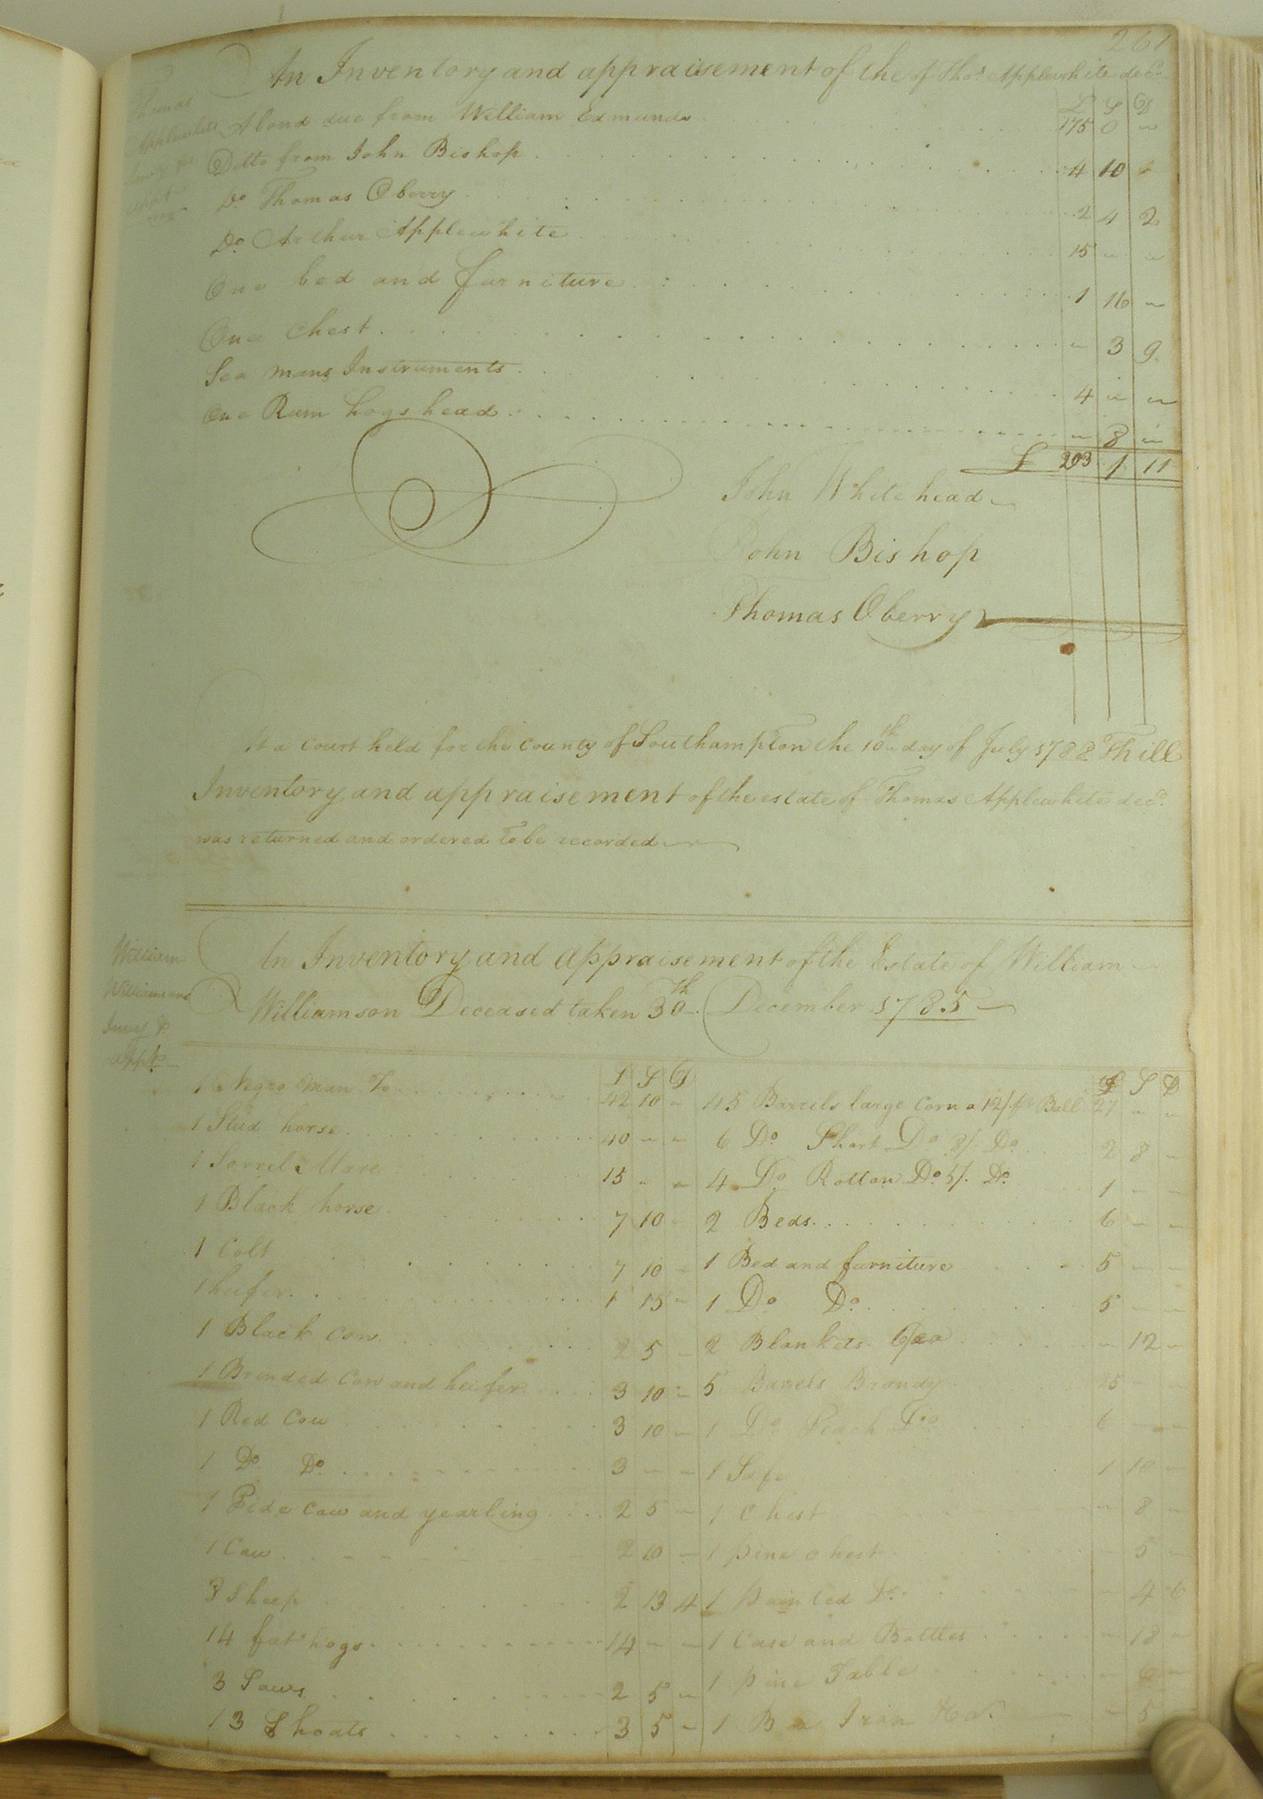 261
An Inventory and appraisement of the of Thos. Applewhite decd.
Thomas
Applewhite
£ S D
A bond due from William Edmunds 175 0 -
Ditto from John Bishop 4 10
Do Thomas Oberry 2 4 2
Do. Arthur Applewhite 15 - -
One bed and furniture 1 16 -
One Chest - 3 9
Sea mans Instruments 4 - -
One Rum hogshead - 8 -
£ 203 1 11
John Whitehead
John Bishop
Thomas Oberry
At a court held for the county of Southampton the 10th day of July 1788
Inventory and appraisement of the estate of Thomas Applewhite decd.
was returned and ordered to be recorded
William
Williamsons
Invy &
appt.
An Inventory and appraisement of the Estate of William
Williamson Deceased taken 30th. December 1785
£ S D
1 Negro Man 42 10 -
1 Stud horse 40 - -
1 Sorrel Mare 15 - -
1 Black horse 7 10 -
1 Colt 7 10 -
1 heifer 1 15 -
1 Black Cow 2 5 -
1 Brinded Cow and heifer 3 10 -
1 Red Cow 3 10 -
1 Do Do. 3 - -
1 Pide Cow and yearling 2 5 -
1 Cow 2 10 -
8 Sheep 2 13 4
14 fat hogs 14 - -
3 Sows 2 5 -
13 Shoats 3 5 -
£ S D
45 Barrels large Corn a 12/ 27 - -
6 Do Short Do 8/. Do 2 8 -
4 Do Rotton Do 5/. Do. 1 - -
2 Beds 6 - -
1 Bed and furniture 5 - -
1 Do Do. 5 - -
2 Blankets - 12 -
5 Barrels Brandy 15 - -
1 Do Peach Do 6 - -
1 Safe 1 10 -
1 Chest - 8 -
1 pine chest - 5 -
1 Painted Do. - 4 6
1 Case and Bottles - 18 -
1 pine Table
1 Iron - 5 -